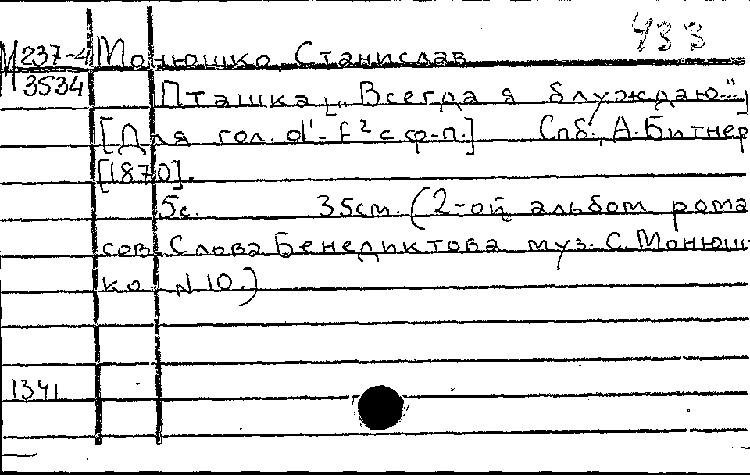 433
М237-4 Монюшко Станислав
3534 Пташка [„Всегда я блуждаю..."]
[Для гол. d¹-f² с ф-п.] Спб., А. Битнер
[1870].
5с. 35см. (2-ой альбом рома
сов. Слова Бенедиктова муз. С. Монюш
ко N 10.)
1341